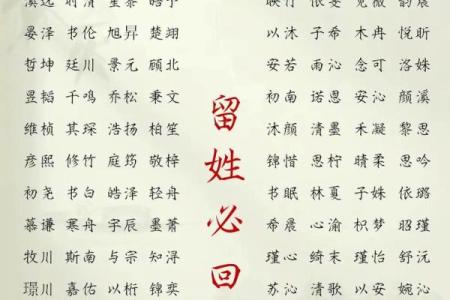 晏泽 书伦 旭昇 楚翊
哲坤 廷川 景元 顾北
昱韬 千鸣 乔松 秉文
维桢 其琛 浩扬 柏笙
彦熙 修竹 庭筠 敬梓
初尧 书白 皓泽 轻舟
慕谦 寒舟 宇辰 墨萧
牧川 斯南 与宗 知浔
璟川 嘉佑 以桁 锦奕
留姓必回
以沐 子希 木冉 悦昕
安若 雨沁 念可 洛姝
初南 诺恩 安沁 颜溪
沐颜 清墨 禾凝 黎思
锦惜 思柠 晴柔 思吟
书眠 林夏 子姝 依璐
希晨 心渝 枳梦 昭瑾
瑾心 绮末 瑾怡 舒沅
苏沁 清歌 以安 婉沁